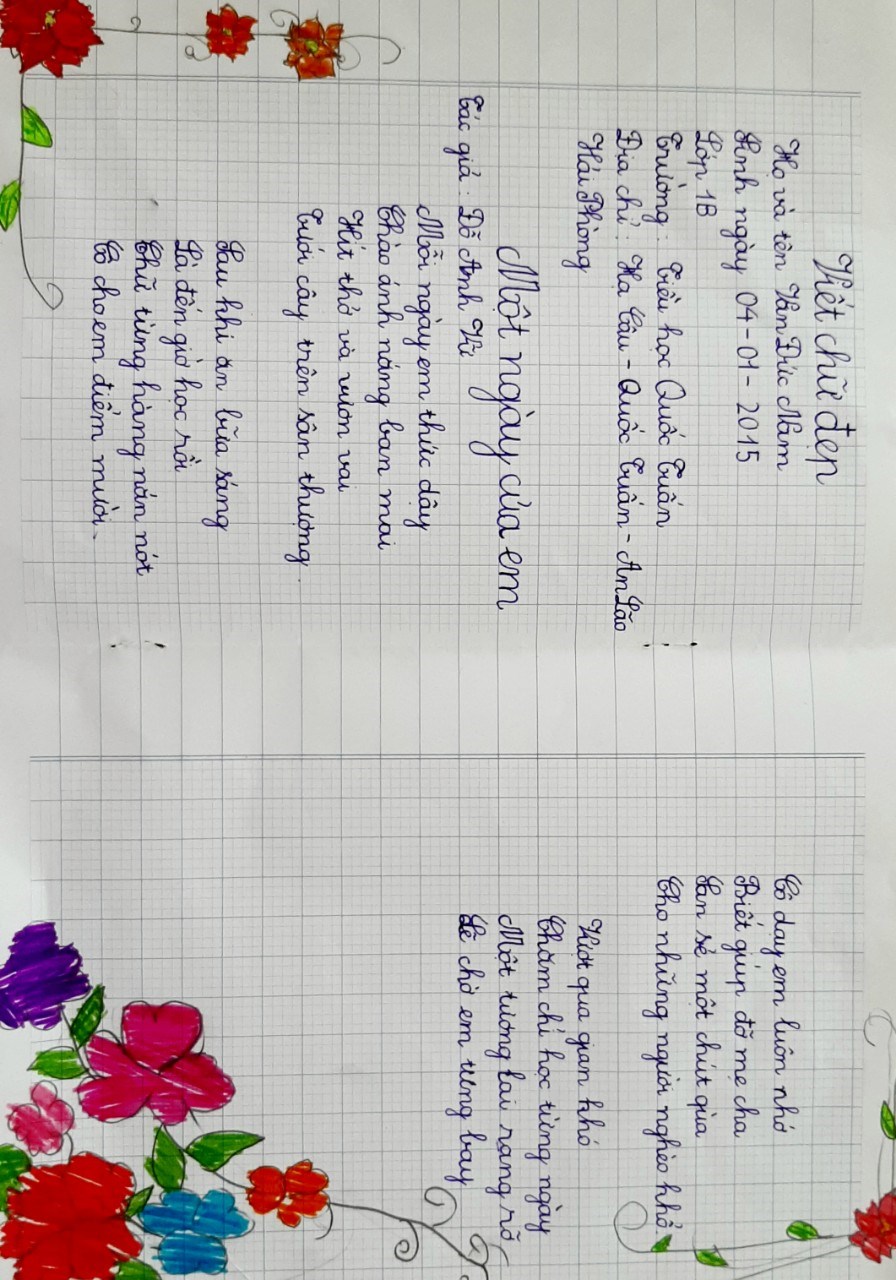 Viết chữ đẹp
Họ và tên Văn Đức Nam
Sinh ngày 04-01-2015
Lớp 1B
Trường: Tiểu học Quốc Tuấn
Địa chỉ: Hạ Câu - Quốc Tuấn - An Lão
Hải Phòng
Một ngày của em
Tác giả: Đỗ Anh Vũ
Mỗi ngày em thức dậy
Chào ánh nắng ban mai
Hít thở và vươn vai
Tưới cây trên sân thượng.
Sau khi ăn bữa sáng
Là đến giờ học rồi
Chữ từng hàng nắn nót
Cô cho em điểm mười.
Cô dạy em luôn nhớ
Biết giúp đỡ mẹ cha
San sẻ một chút quà
Cho những người nghèo khổ.
Vượt qua gian khó
Chăm chỉ học từng ngày
Một tương lai rạng rỡ
Sẽ chờ em tung bay